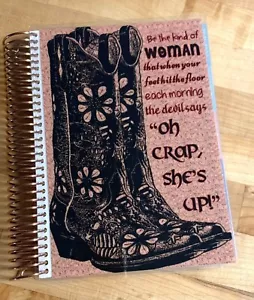 Be the kind of
WOMAN
that when your
feet hit the floor
each morning
the devil says
"oh
CRAP,
she's
up!"